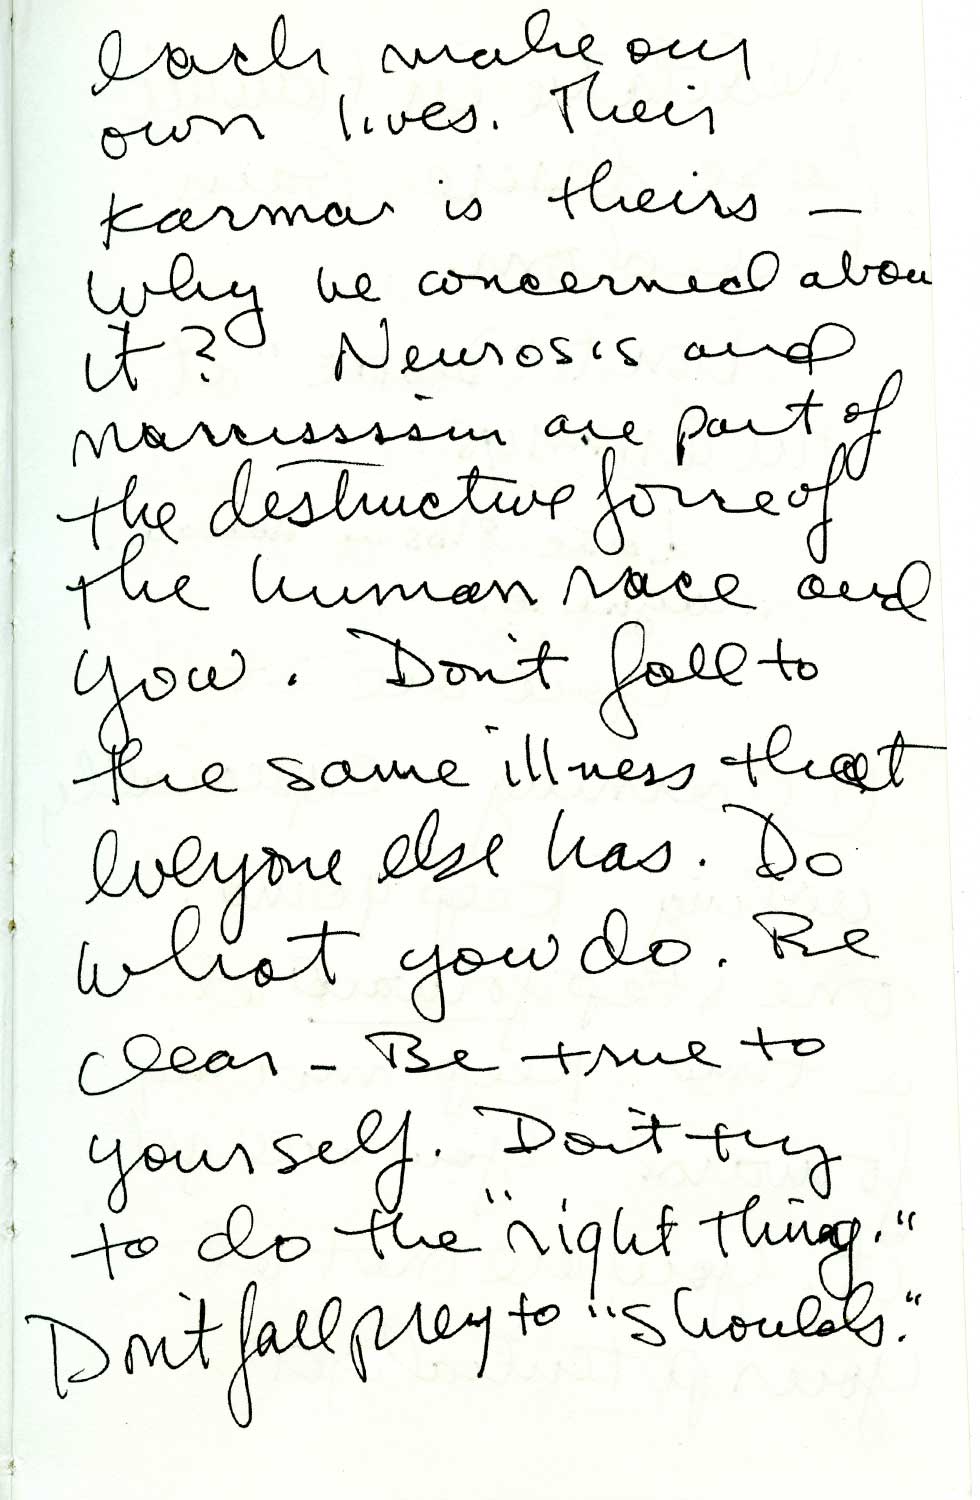 each make our
own lives. Their
karma is theirs –
why be concerned abou
it? Neurosis and
narcissism are part of
the destructive force of
the human race and
you. Don't fall to
the same illness that
everyone else has. Do
what you do. Be
clear – Be true to
yourself. Don't try
to do the "right thing."
Don't fall prey to "shoulds."